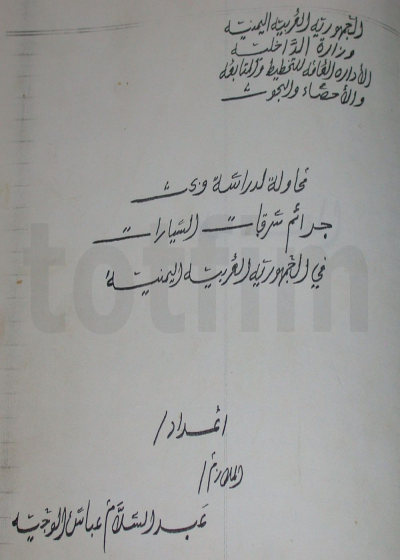 الجمهورية العربية اليمنية
وزارة الداخلية
الأدارة العامة للتخطيط والمتابعة
والأحصاء والبحوث
محاولة لدراسة
جرائم سرقات السيارات
في الجمهورية العربية اليمنية
اعداد/
الملازم/
عبد السلام عباس الوجيه
totfim